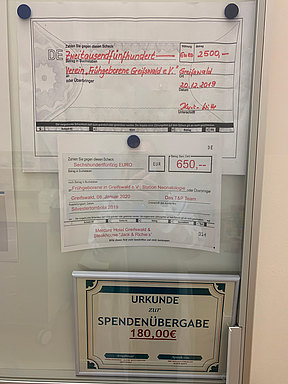 DE
Zahlen Sie gegen diesen Scheck
Zweitausendfünfhundert
Währung Betrag
Euro 2500,-
Betrag in Buchstaben
Verein "Frühgeborene Greifswald e.V."
Greifswald
oder Überbringer
20.12.2019
Datum
Unterschrift
DE
Zahlen Sie gegen diesen Scheck
Sechshundertfünfzig EURO
EUR
650,--
Betrag in Buchstaben
Frühgeborene in Greifswald e.V., Station Neonatologie
oder Überbringer
Greifswald, 08. Januar 2020
Das T&P Team
Silvestertombola 2019
Mercure Hotel Greifswald &
Steakhouse "Jack & Richie's"
URKUNDE
zur
SPENDENÜBERGABE
180,00€